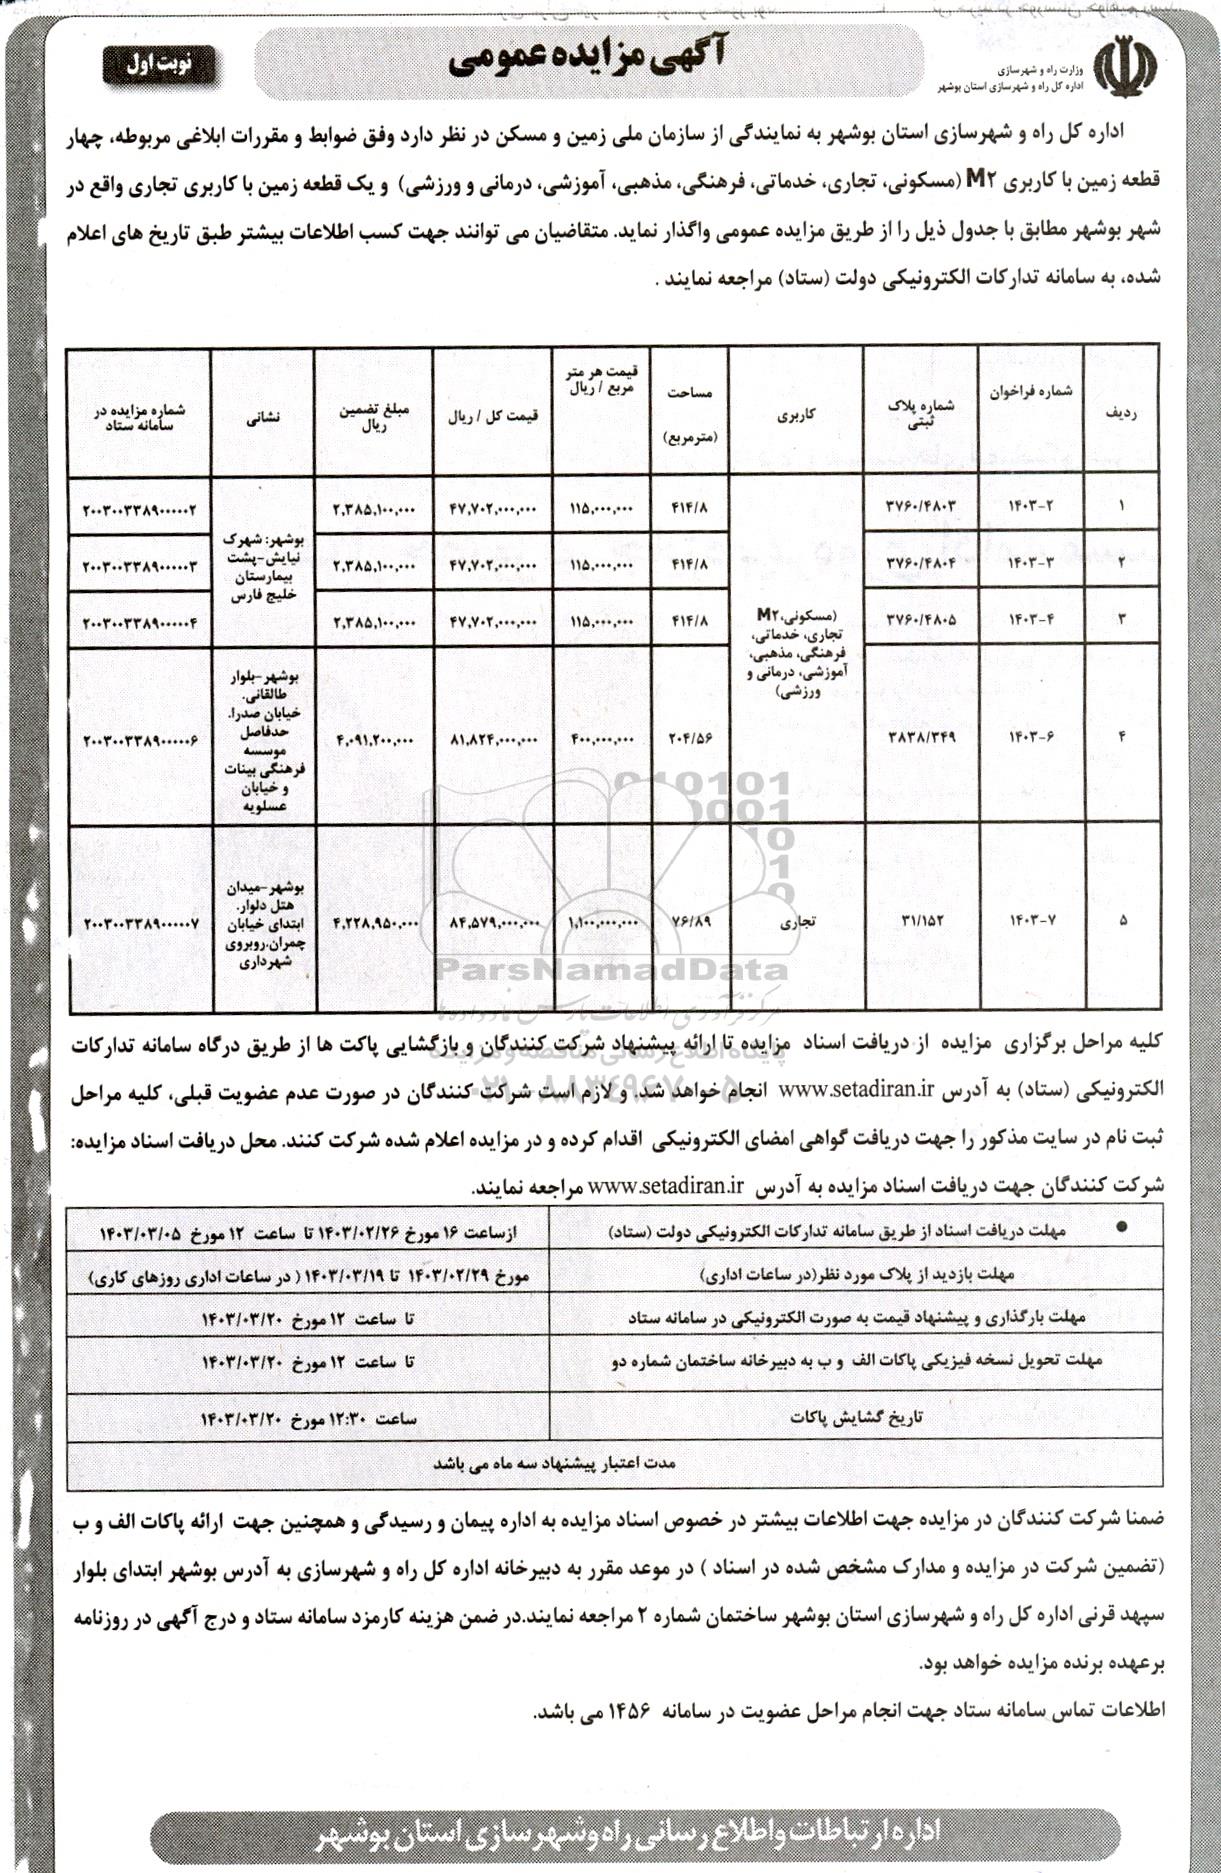 آگهی مزایده عمومی
نوبت اول
وزارت راه و شهرسازی
اداره کل راه و شهرسازی استان بوشهر
اداره کل راه و شهرسازی استان بوشهر به نمایندگی از سازمان ملی زمین و مسکن در نظر دارد وفق ضوابط و مقررات ابلاغی مربوطه، چهار
قطعه زمین با کاربری M۲ (مسکونی، تجاری، خدماتی، فرهنگی، مذهبی، آموزشی، درمانی و ورزشی) و یک قطعه زمین با کاربری تجاری واقع در
شهر بوشهر مطابق با جدول ذیل را از طریق مزایده عمومی واگذار نماید. متقاضیان می توانند جهت کسب اطلاعات بیشتر طبق تاریخ های اعلام
شده، به سامانه تدارکات الکترونیکی دولت (ستاد) مراجعه نمایند .
ردیف | شماره فراخوان | شماره پلاک ثبتی | کاربری | مساحت (مترمربع) | قیمت هر متر مربع / ریال | قیمت کل / ریال | مبلغ تضمین ریال | نشانی | شماره مزایده در سامانه ستاد
۱ | ۱۴۰۳-۲ | ۳۷۶۰/۴۸۰۳ | M۲ (مسکونی، تجاری، خدماتی، فرهنگی، مذهبی، آموزشی، درمانی و ورزشی) | ۴۱۴/۸ | ۱۱۵,۰۰۰,۰۰۰ | ۴۷,۷۰۲,۰۰۰,۰۰۰ | ۲,۳۸۵,۱۰۰,۰۰۰ | بوشهر: شهرک نیایش-پشت بیمارستان خلیج فارس | ۲۰۰۳۰۰۳۳۸۹۰۰۰۰۰۲
۲ | ۱۴۰۳-۳ | ۳۷۶۰/۴۸۰۴ | ۴۱۴/۸ | ۱۱۵,۰۰۰,۰۰۰ | ۴۷,۷۰۲,۰۰۰,۰۰۰ | ۲,۳۸۵,۱۰۰,۰۰۰ | ۲۰۰۳۰۰۳۳۸۹۰۰۰۰۰۳
۳ | ۱۴۰۳-۴ | ۳۷۶۰/۴۸۰۵ | ۴۱۴/۸ | ۱۱۵,۰۰۰,۰۰۰ | ۴۷,۷۰۲,۰۰۰,۰۰۰ | ۲,۳۸۵,۱۰۰,۰۰۰ | ۲۰۰۳۰۰۳۳۸۹۰۰۰۰۰۴
۴ | ۱۴۰۳-۶ | ۳۸۳۸/۳۴۹ | ۲۰۴/۵۶ | ۴۰۰,۰۰۰,۰۰۰ | ۸۱,۸۲۴,۰۰۰,۰۰۰ | ۴,۰۹۱,۲۰۰,۰۰۰ | بوشهر-بلوار طالقانی. خیابان صدرا. حدفاصل موسسه فرهنگی بینات و خیابان عسلویه | ۲۰۰۳۰۰۳۳۸۹۰۰۰۰۰۶
۵ | ۱۴۰۳-۷ | ۳۱/۱۵۲ | تجاری | ۷۶/۸۹ | ۱,۱۰۰,۰۰۰,۰۰۰ | ۸۴,۵۷۹,۰۰۰,۰۰۰ | ۴,۲۲۸,۹۵۰,۰۰۰ | بوشهر-میدان هتل دلوار. ابتدای خیابان چمران.روبروی شهرداری | ۲۰۰۳۰۰۳۳۸۹۰۰۰۰۰۷
ParsNamadData
مرکز فرآوری اطلاعات پارس نماد داده ها
پایگاه اطلاع رسانی مناقصه و مزایده
۰۲۱-۸۸۳۴۹۶۷۰-۵
کلیه مراحل برگزاری مزایده از دریافت اسناد مزایده تا ارائه پیشنهاد شرکت کنندگان و بازگشایی پاکت ها از طریق درگاه سامانه تدارکات
الکترونیکی (ستاد) به آدرس www.setadiran.ir انجام خواهد شد. و لازم است شرکت کنندگان در صورت عدم عضویت قبلی، کلیه مراحل
ثبت نام در سایت مذکور را جهت دریافت گواهی امضای الکترونیکی اقدام کرده و در مزایده اعلام شده شرکت کنند. محل دریافت اسناد مزایده:
شرکت کنندگان جهت دریافت اسناد مزایده به آدرس www.setadiran.ir مراجعه نمایند.
• مهلت دریافت اسناد از طریق سامانه تدارکات الکترونیکی دولت (ستاد) | ازساعت ۱۶ مورخ ۱۴۰۳/۰۲/۲۶ تا ساعت ۱۲ مورخ ۱۴۰۳/۰۳/۰۵
مهلت بازدید از پلاک مورد نظر(در ساعات اداری) | مورخ ۱۴۰۳/۰۲/۲۹ تا ۱۴۰۳/۰۳/۱۹ ( در ساعات اداری روزهای کاری)
مهلت بارگذاری و پیشنهاد قیمت به صورت الکترونیکی در سامانه ستاد | تا ساعت ۱۲ مورخ ۱۴۰۳/۰۳/۲۰
مهلت تحویل نسخه فیزیکی پاکات الف و ب به دبیرخانه ساختمان شماره دو | تا ساعت ۱۲ مورخ ۱۴۰۳/۰۳/۲۰
تاریخ گشایش پاکات | ساعت ۱۲:۳۰ مورخ ۱۴۰۳/۰۳/۲۰
مدت اعتبار پیشنهاد سه ماه می باشد
ضمنا شرکت کنندگان در مزایده جهت اطلاعات بیشتر در خصوص اسناد مزایده به اداره پیمان و رسیدگی و همچنین جهت ارائه پاکات الف و ب
(تضمین شرکت در مزایده و مدارک مشخص شده در اسناد ) در موعد مقرر به دبیرخانه اداره کل راه و شهرسازی به آدرس بوشهر ابتدای بلوار
سپهد قرنی اداره کل راه و شهرسازی استان بوشهر ساختمان شماره ۲ مراجعه نمایند.در ضمن هزینه کارمزد سامانه ستاد و درج آگهی در روزنامه
برعهده برنده مزایده خواهد بود.
اطلاعات تماس سامانه ستاد جهت انجام مراحل عضویت در سامانه ۱۴۵۶ می باشد.
اداره ارتباطات و اطلاع رسانی راه و شهرسازی استان بوشهر